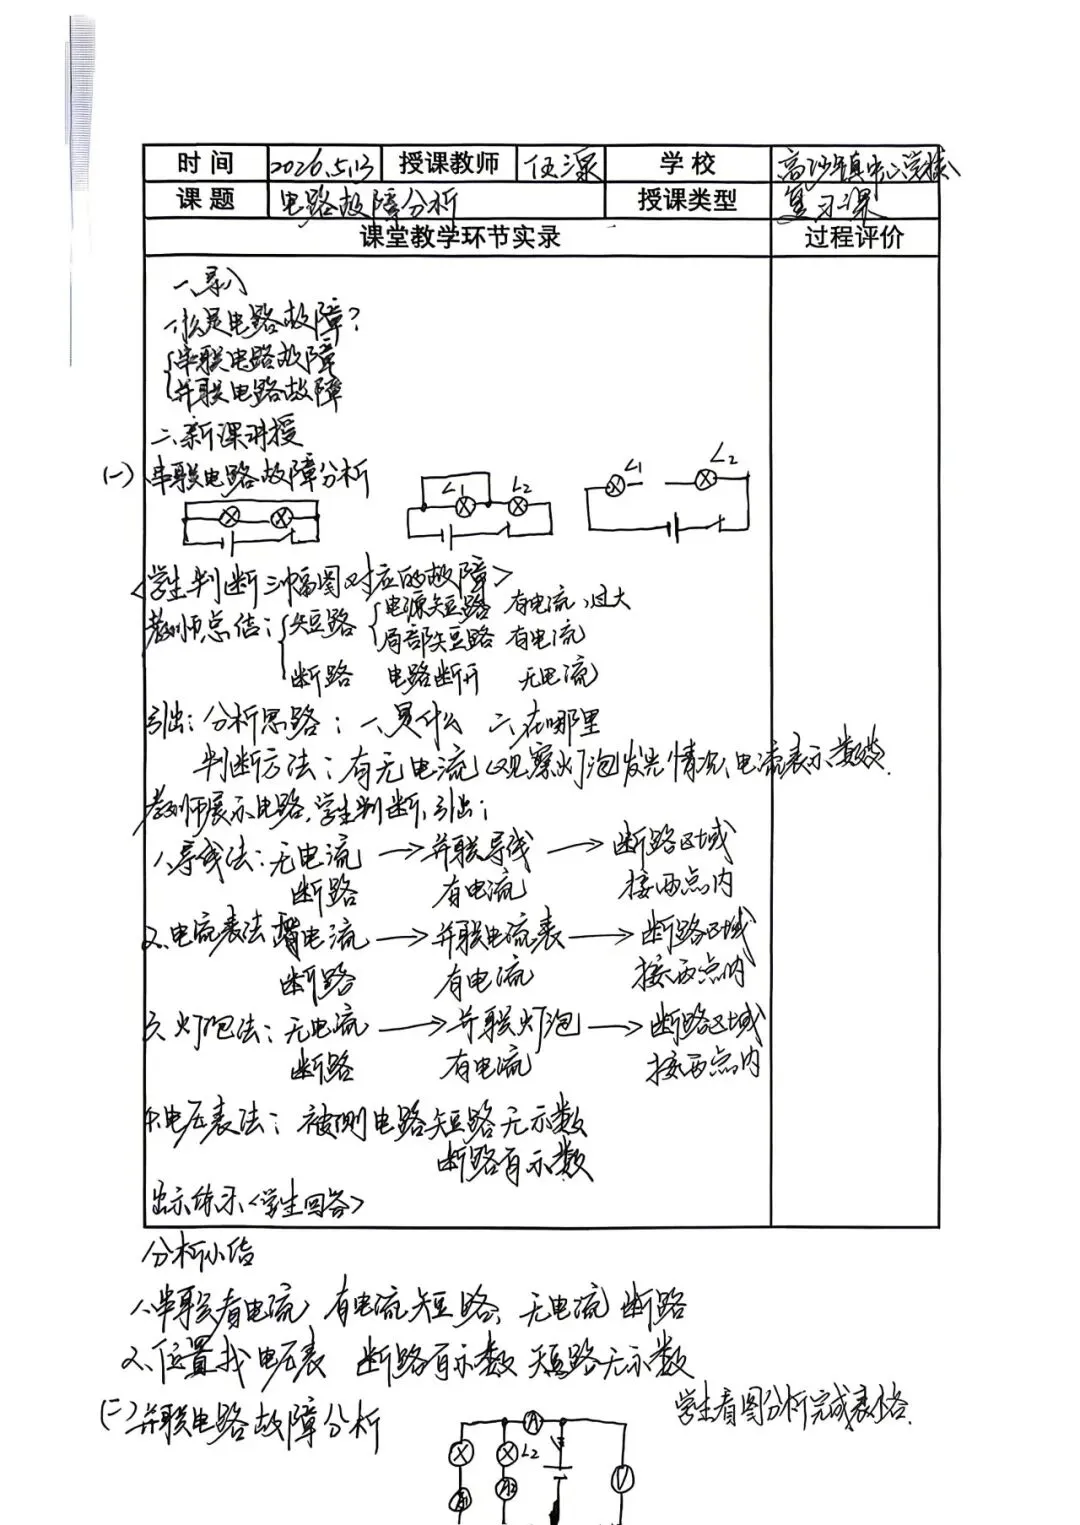 时间 2026.5.13 授课教师 伍源 学校 高沙镇中心学校
课题 电路故障分析 授课类型 复习课
课堂教学环节实录 过程评价
一、导入
什么是电路故障?
串联电路故障
并联电路故障
二、新课讲授
(一)串联电路故障分析
L1 L2 L1 L2
<学生判断三幅图对应的故障>
教师总结: 短路 电源短路 有电流,过大
局部短路 有电流
断路 电路断开 无电流
引出:分析思路: 一、是什么 二、在哪里
判断方法:有无电流(观察灯泡发光情况、电流表示数
教师展示电路,学生判断,引出:
1、导线法:无电流 → 并联导线 → 断路区域
断路 有电流 接两点内
2、电流表法 电流 → 并联电流表 → 断路区域
断路 有电流 接两点内
3、灯泡法:无电流 → 并联灯泡 → 断路区域
断路 有电流 接两点内
4.电压表法: 被测电路短路无示数
断路有示数
出示练习<学生回答>
分析小结
1、串联看电流, 有电流短路, 无电流断路
2、位置找电压表 断路有示数 短路无示数
(二)并联电路故障分析 学生看图分析完成表格.
A
L2
A1 A2 V